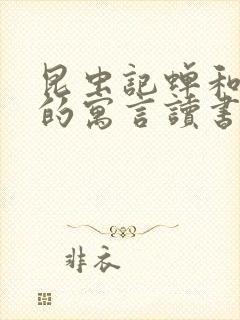 昆虫記蟬和
的寓言讀書
非衣